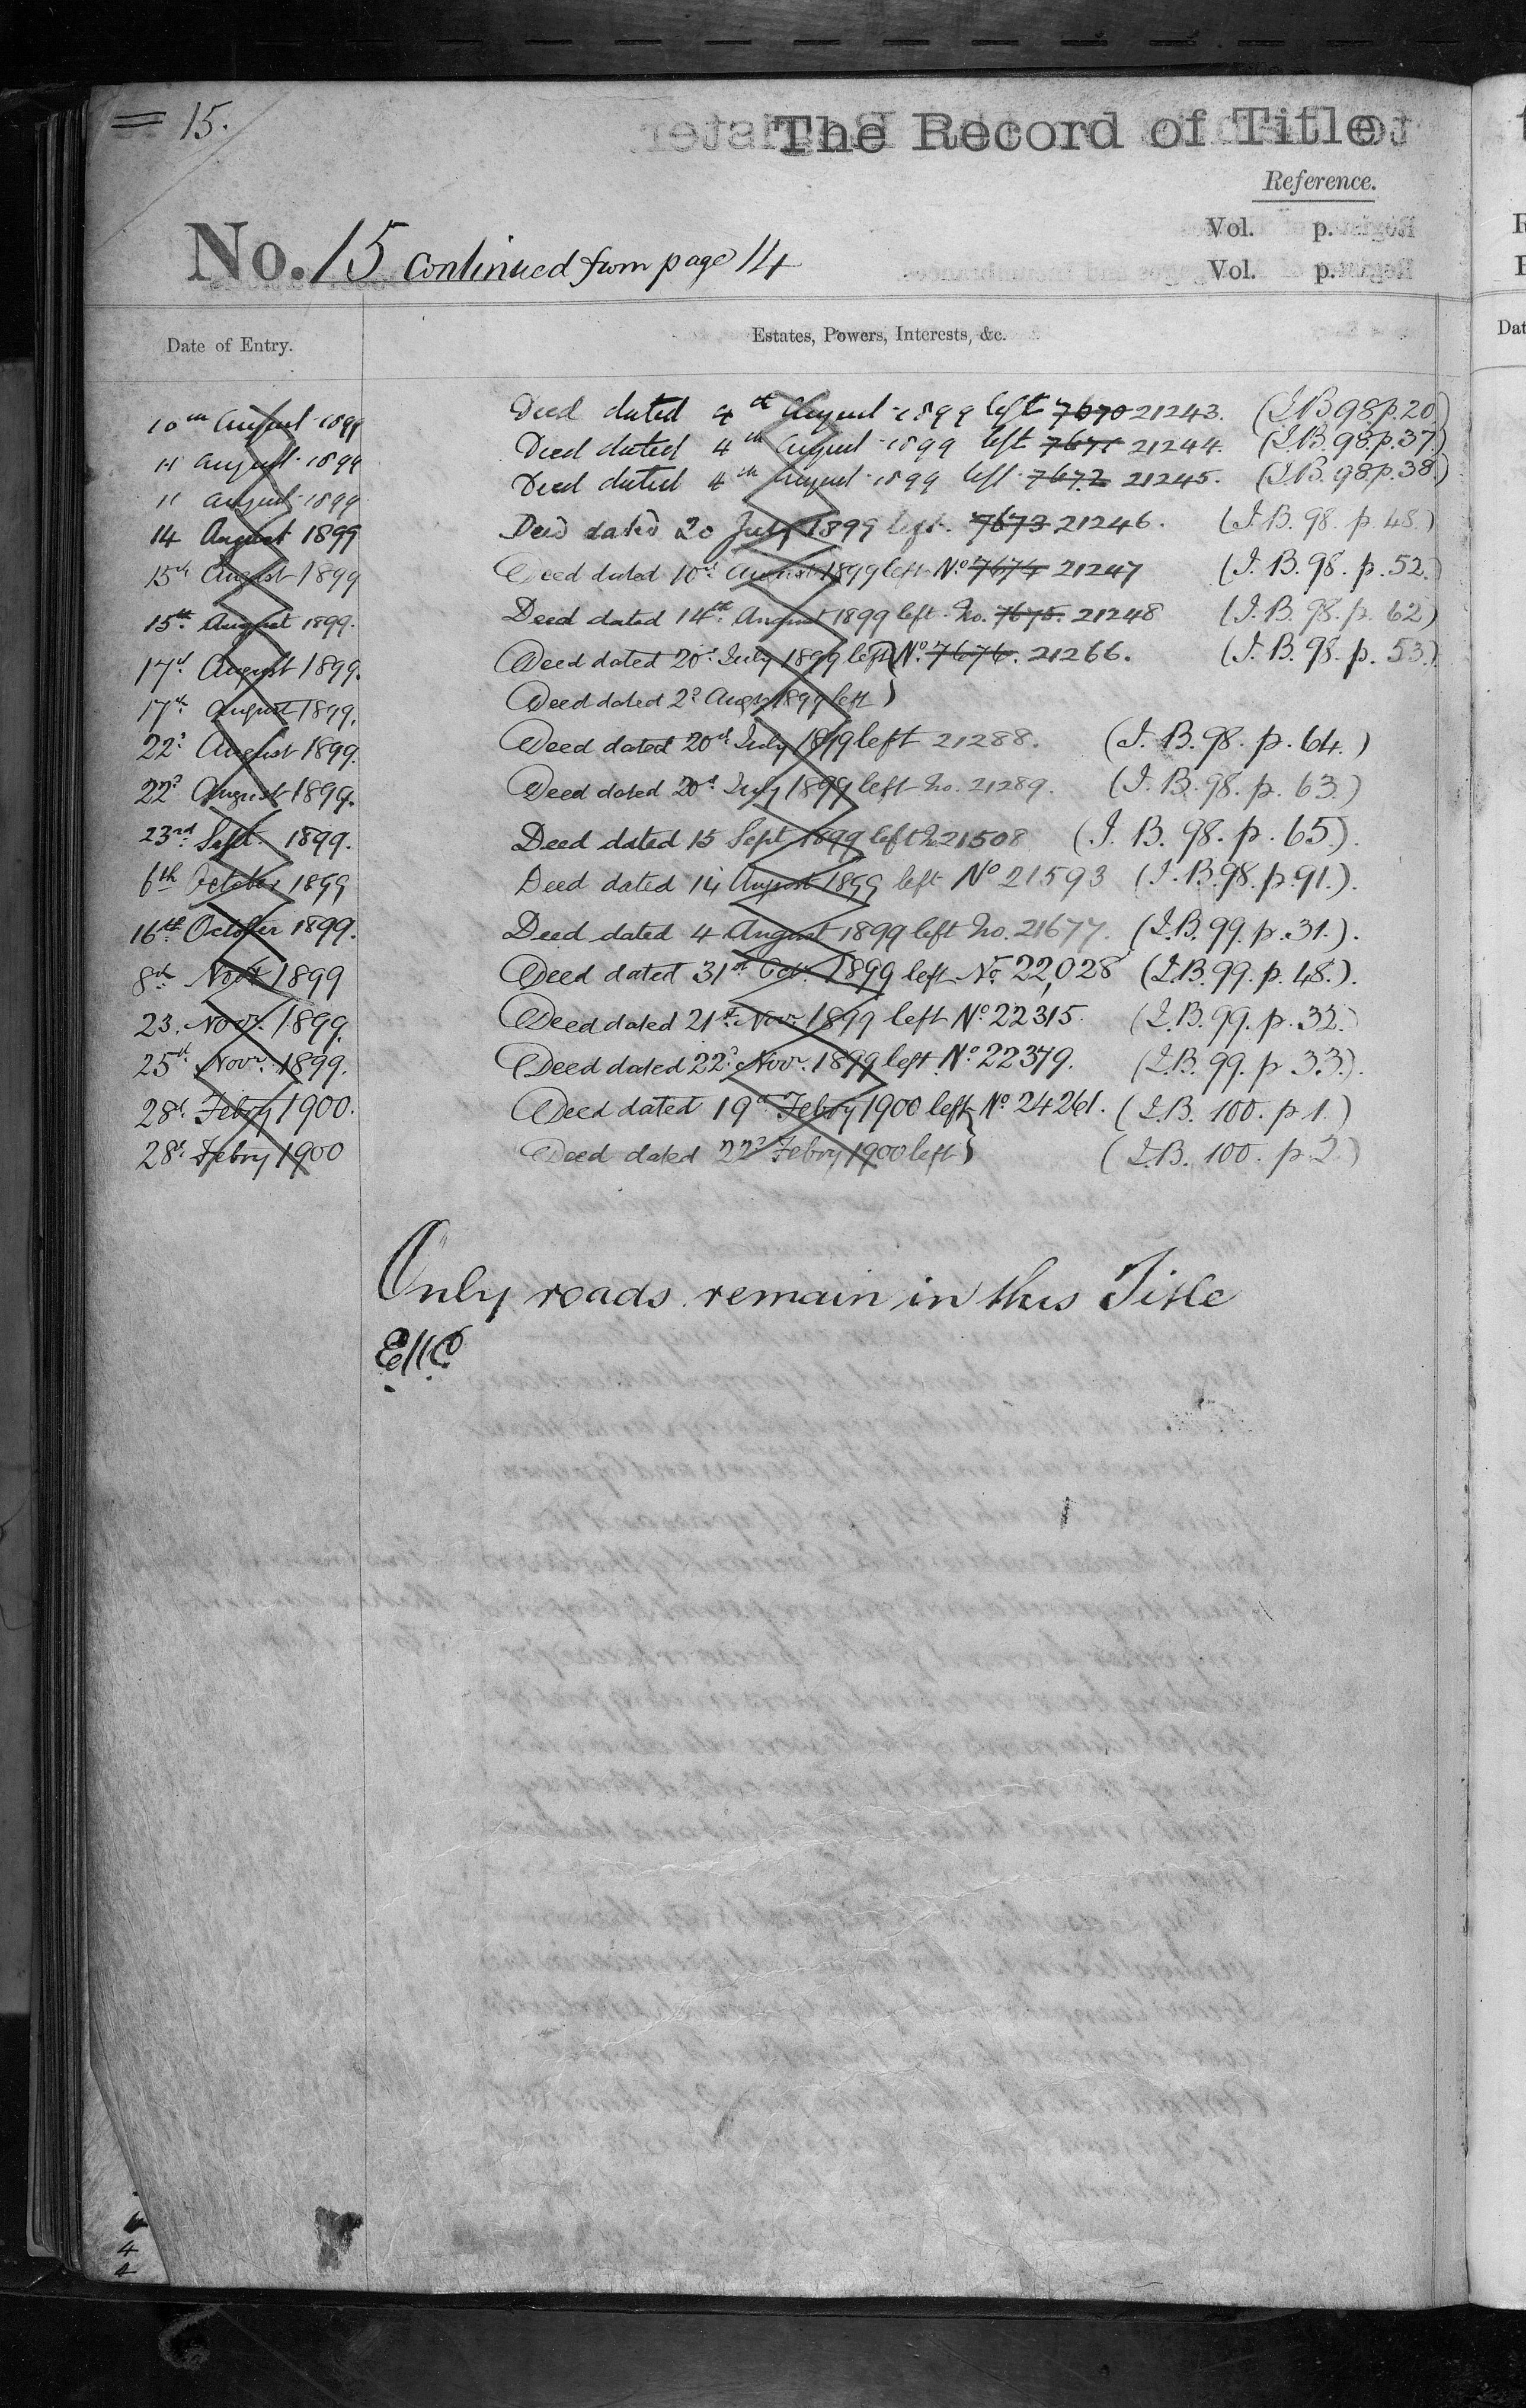 15.
The Record of Title
Reference.
Vol. p.
No. 15 continued from page 14
Vol. p.
Date of Entry. Estates, Powers, Interests, &c.
10th August 1899 Deed dated 4th August 1899 left 7670 21243. (I.B. 98 p. 20)
11 August 1899 Deed dated 4th August 1899 left 7671 21244. (I.B. 98. p. 37)
11 August 1899 Deed dated 4th August 1899 left 7672 21245. (I.B. 98. p. 38)
14 August 1899 Deed dated 20 July 1899 left. 7673 21246. (I.B. 98. p. 48.)
15th August 1899 Deed dated 10th August 1899 left No 7674 21247 (I.B. 98. p. 52.)
15th August 1899. Deed dated 14th August 1899 left No. 7675. 21248 (I.B. 98. p. 62)
17th August 1899. Deed dated 20th July 1899 left } No. 7676. 21266. (I.B. 98. p. 53.)
17th August 1899. Deed dated 2d Augt 1899 left }
22d August 1899. Deed dated 20th July 1899 left 21288. (I.B. 98. p. 64.)
22d August 1899. Deed dated 20th July 1899 left No. 21289. (I.B. 98. p. 63.)
23rd Sept. 1899. Deed dated 15 Sept 1899 left No 21508 (I.B. 98. p. 65).
6th October 1899 Deed dated 14 August 1899 left No 21593 (I.B. 98. p. 91.).
16th October 1899. Deed dated 4 August 1899 left No. 21677. (I.B. 99. p. 31.).
8th Novr 1899 Deed dated 31st Oct. 1899 left No. 22,028 (I.B. 99. p. 48.).
23. Novr. 1899. Deed dated 21st Novr. 1899 left No 22315. (I.B. 99. p. 32.)
25th Novr. 1899. Deed dated 22d Novr. 1899 left No. 22379. (I.B. 99. p 33.).
28th Febry 1900. Deed dated 19th Febry 1900 left } No. 24261. (I.B. 100. p 1.)
28th Febry 1900 Deed dated 22d Febry 1900 left } (I.B. 100. p 2.)
Only roads remain in this Title